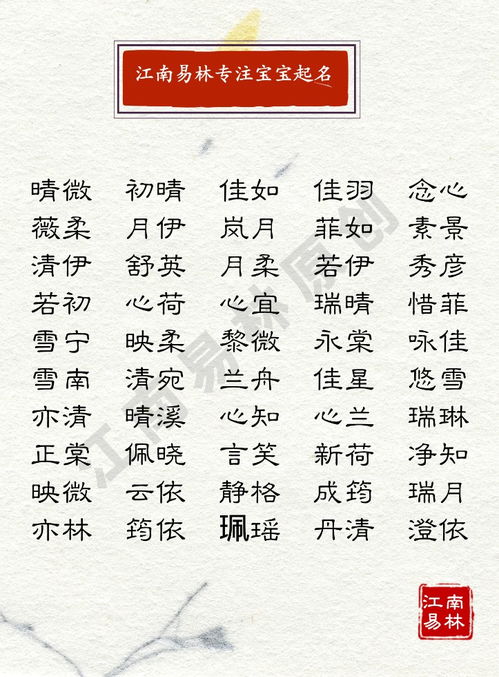 江南易林专注宝宝起名
晴微 初晴 佳如 佳羽 念心
薇柔 月伊 岚月 菲如 素景
清伊 舒英 月柔 若伊 秀彦
若初 心荷 心宜 瑞晴 惜菲
雪宁 映柔 黎微 永棠 咏佳
雪南 清宛 兰舟 佳星 悠雪
亦清 晴溪 心知 心兰 瑞琳
正棠 佩晓 言笑 新荷 净知
映微 云依 静格 成筠 瑞月
亦林 筠依 珮瑶 丹清 澄依
江南易林原创
江南
易林